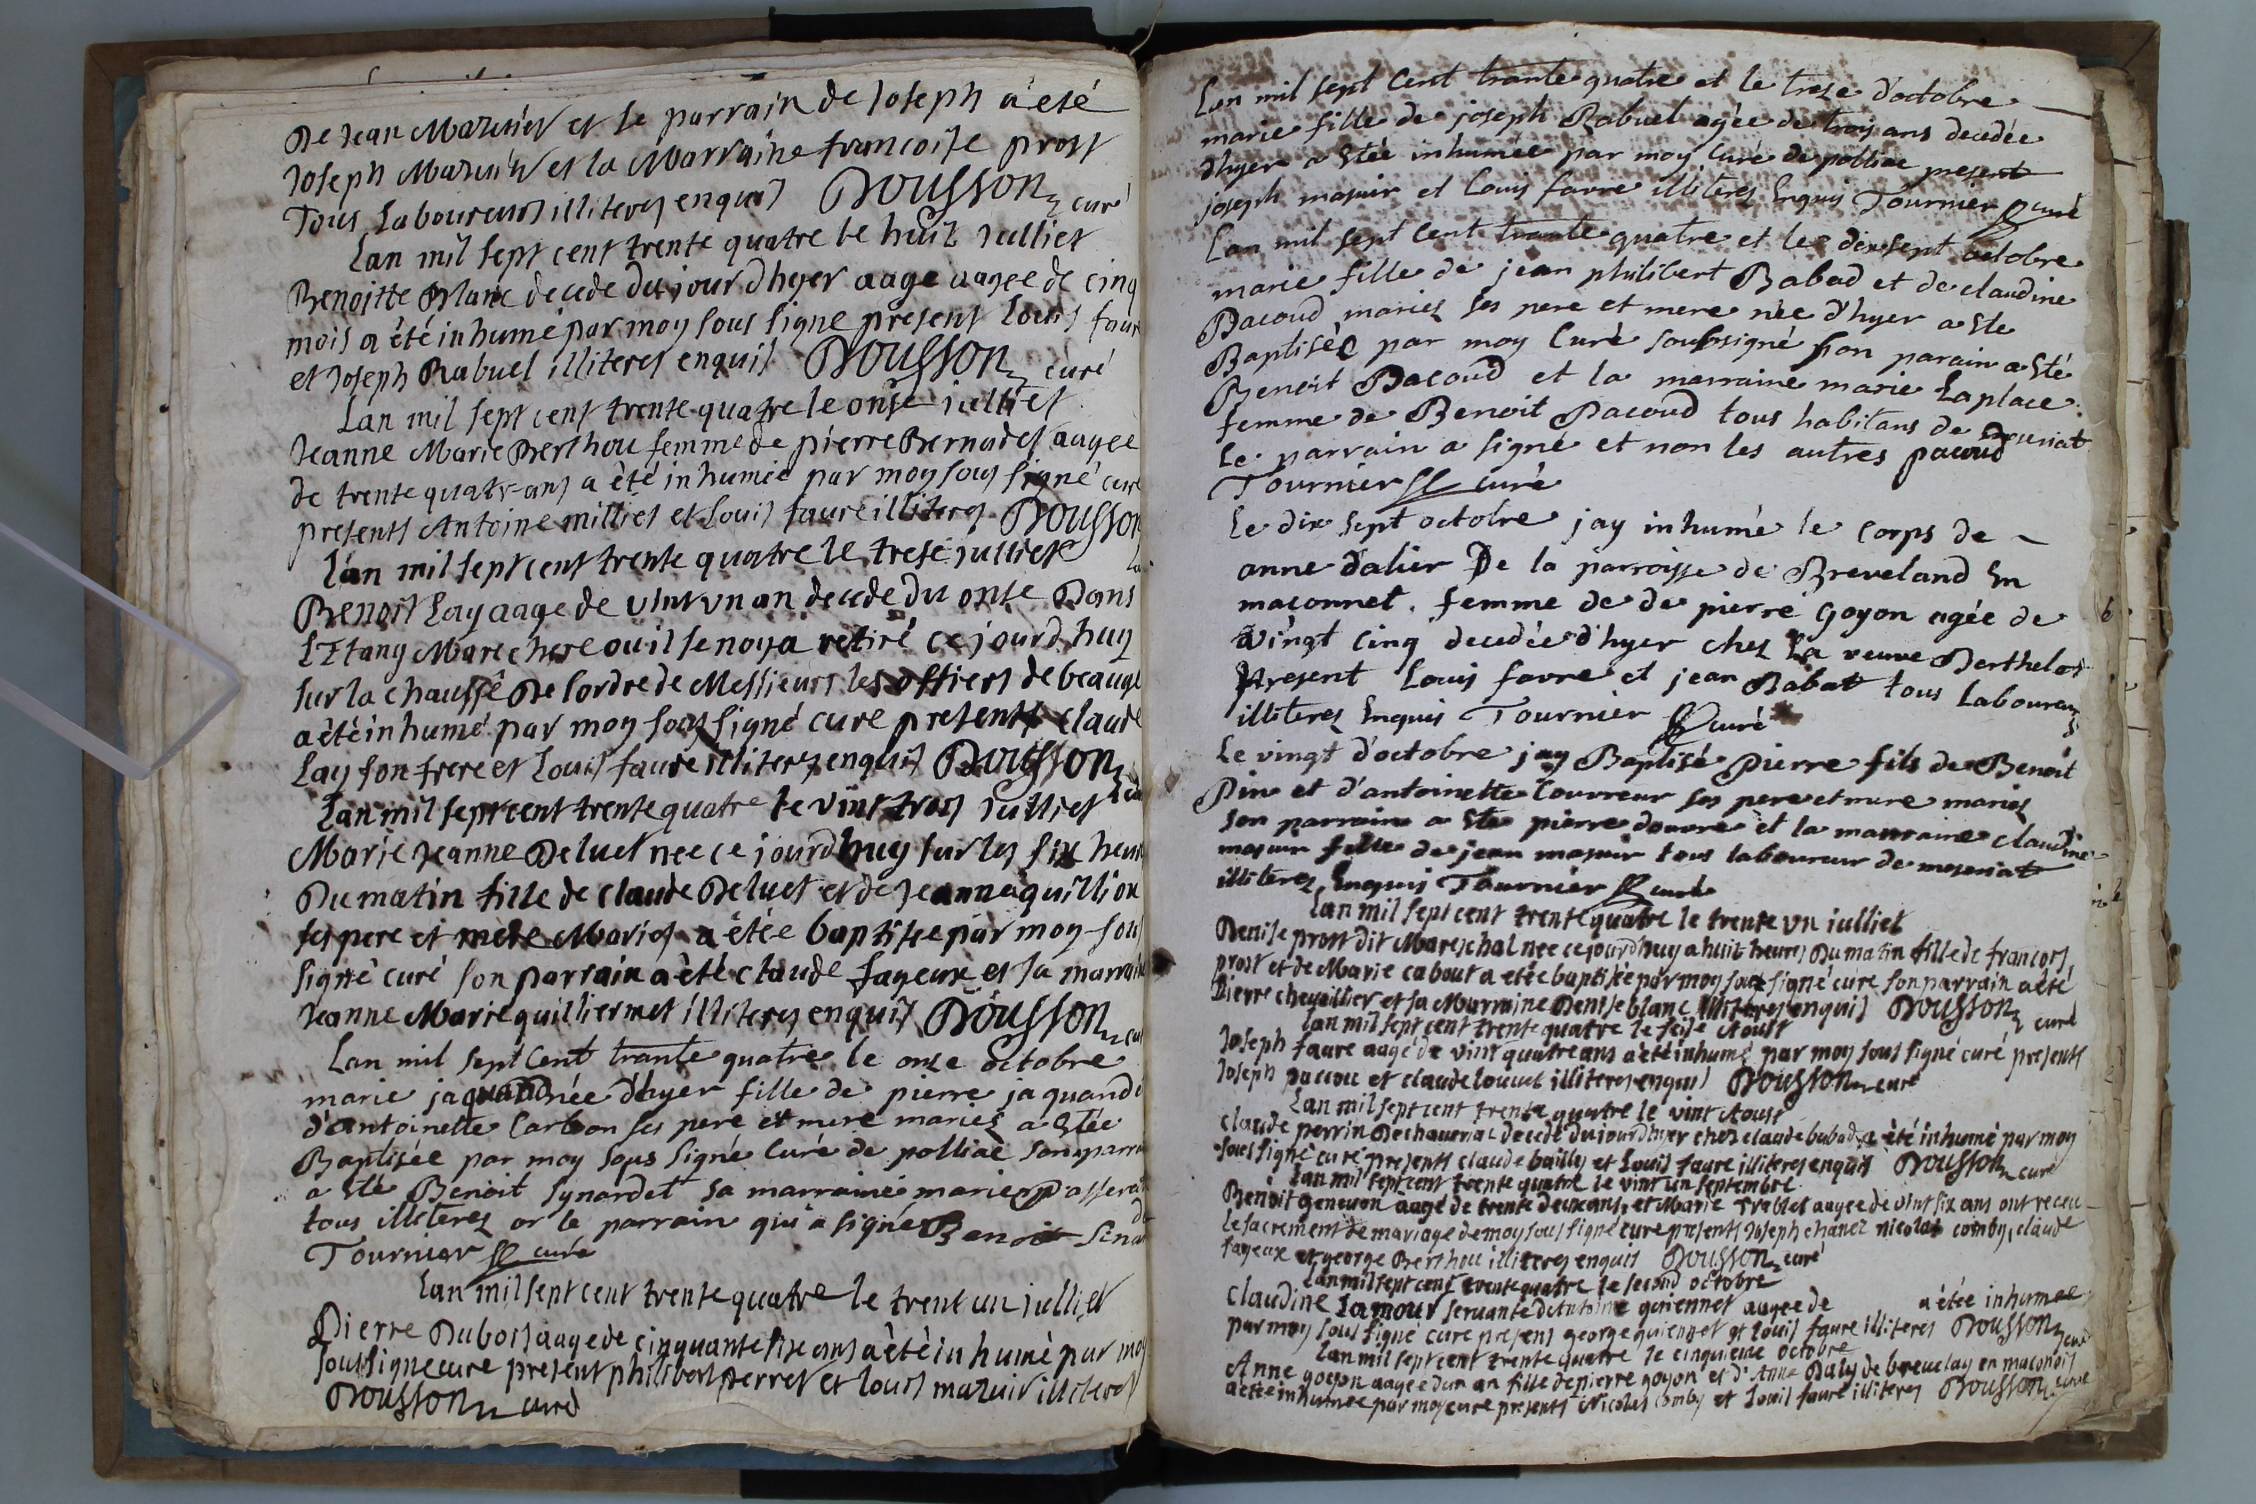 De Jean Mazuÿer et le parrain de Joseph a été
Joseph Mazuir et la Marraine francoise prost
Tous Laboureurs illiteres enquis Dousson curé
Lan mil sept cent trente quatre le huit julliet
Benoitte Blanc decede du jour dhyer aage aagee de cinq
mois a été inhumé par moy sous signe present Louis faur
et Joseph Rabuel illiteres enquis Dousson curé
Lan mil sept cent trente quatre le onse julliet
Jeanne Marie Berthou femme de pierre Bernadet aagee
de trente quatr ans a été inhumée par moy sous signé curé
presents Antoine milliet et Louis faure illiteres Dousson
Lan mil sept cent trente quatre le trese julliet
Benoit Lay aage de vint un an decede du onse Dans
LEtang Marechere ou il se noya retiré ce jourd huy
sur la chaussé De lordre de Messieurs les offiers de beauge
a été inhumé par moy sous signé curé presents claude
Lay son frere et Louis faure illiteres enquis Dousson
Lan mil sept cent trente quatre le vint trois julliet
Marie Jeanne Deluet nee ce jourdhuy sur les six heur
Du matin fille de claude Deluet et de Jeanne quillion
ses pere et mere Maries a étée baptisee par moy sous
signé curé son parrain a été claude fayeux et sa marraine
Jeanne Marie quilliermet illiteres enquis Dousson
Lan mil sept Cent trante quatre le onze octobre
marie jaquand née d'hyer fille de pierre jaquand
d'antoinette Carbon ses pere et mere mariez a Stée
Baptisée par moy sous signé Curé de polliac son parra
a Sté Benoit Synardet sa marraine marie passera
tous illiterez or le parrain qui a signé Benoit Sina
Tournier curé
Lan mil sept cent trente quatre le trent un julliet
Pierre Dubois aage de cinquante six ans a été inhumé par moy
soussigne cure present philibert perret et louis mazuir illiteres
Dousson curé
Lan mil sept Cent trante quatre et le treze d'octobre
marie fille de joseph Rabuel agée de trois ans decedée
d'hyer a Stée inhumée par moy Curé de polliac present
joseph masuir et Louis favre illiterez Enquis Tournier curé
Lan mil sept Cent trante quatre et le dixsept octobre
marie fille de jean philibert Babad et de claudine
Pacoud mariez ses pere et mere née d'hyer a Ste
Baptisée par moy Curé soubsigné son parain a Sté
Benoit Pacoud et la marraine marie Laplace
femme de Benoit Pacoud tous habitans de
Le parrain a signé et non les autres pacoud
Tournier curé
Le dix sept octobre jay inhumé le Corps de
anne dalier De la parroisse de Breveland En
maconnet. femme de de pierre Goyon agée de
vingt Cinq decedée d'hyer chez La veuve Berthelot
present Louis favre et jean Babat tous Laboureu
illiterez Enquis Tournier curé
Le vingt d'octobre jay Baptisé pierre fils de Benoit
Pin et d'antoinette Couvreur ses pere et mere mariez
son parrain a Ste pierre douvre et la marraine claudine
masuir fille de jean masuir tous laboureur de meseriat
illiterez Enquis Tournier curé
Lan mil sept cent trente quatre le trente un julliet
Denise prost dit Mareschal nee ce jourdhuy a huit heures Du matin fille de francois
prost et de Marie cabout a etée baptisée par moy sous signé cure son parrain a été
Pierre chevaillier et sa Marraine Denise blanc illiteres enquis Dousson curé
Lan mil sept cent trente quatre le seise Aoust
Joseph faure aagé de vint quatre ans a été inhumé par moy sous signé curé presents
Joseph paccou et claude louuet illiteres enquis Dousson curé
Lan mil sept cent trente quatre le vint Aoust
claude perrin De decedé du jourdhyer chez claude babad a été inhumé par moy
sous signé curé presents claude bailly et Louis faure illiteres enquis Dousson curé
Lan mil sept cent trente quatre le vint un septembre
Benoit genevon aagé de trente deux ans, et Marie Trablet aagee de vint six ans ont receu
le sacrement de mariage de moy sous signé cure presents Joseph chanel nicolas comby, claude
fayeux et george Berthou illiteres enquis Dousson curé
Lan mil sept cent trente quatre le second octobre
Claudine Lamour servante d'Antoine guiennet aagee de a étée inhumee
par moy sous signé cure present george guiennet et louis faure illiteres Dousson curé
Lan mil sept cent trente quatre le cinquieme octobre
Anne goyon aagee dun an fille de pierre goyon et d'Anne Daly de brevelay en maconois
a été inhumee par moy cure presents Nicolas comby et Louis faure illiteres Dousson curé